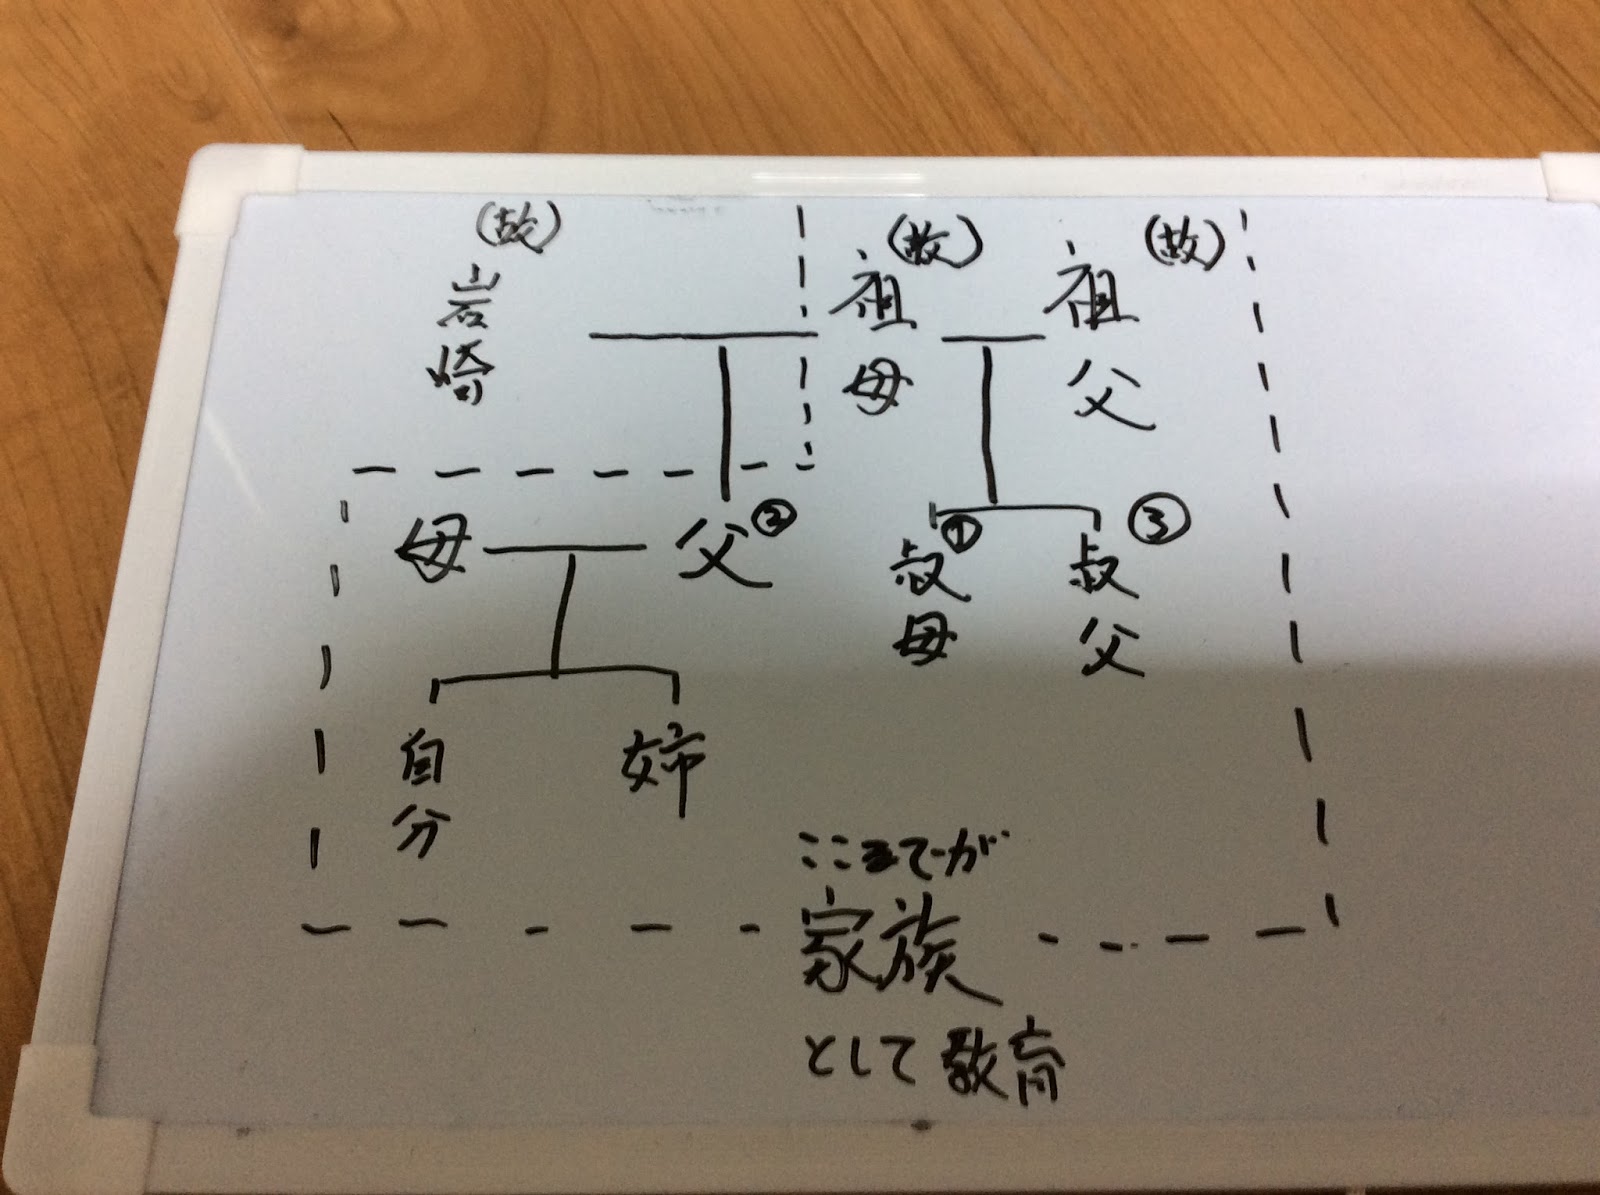 (故)
岩崎
(故)
祖母
(故)
祖父
母
父②
叔母①
叔父③
自分
姉
ここまでが
家族
として教育